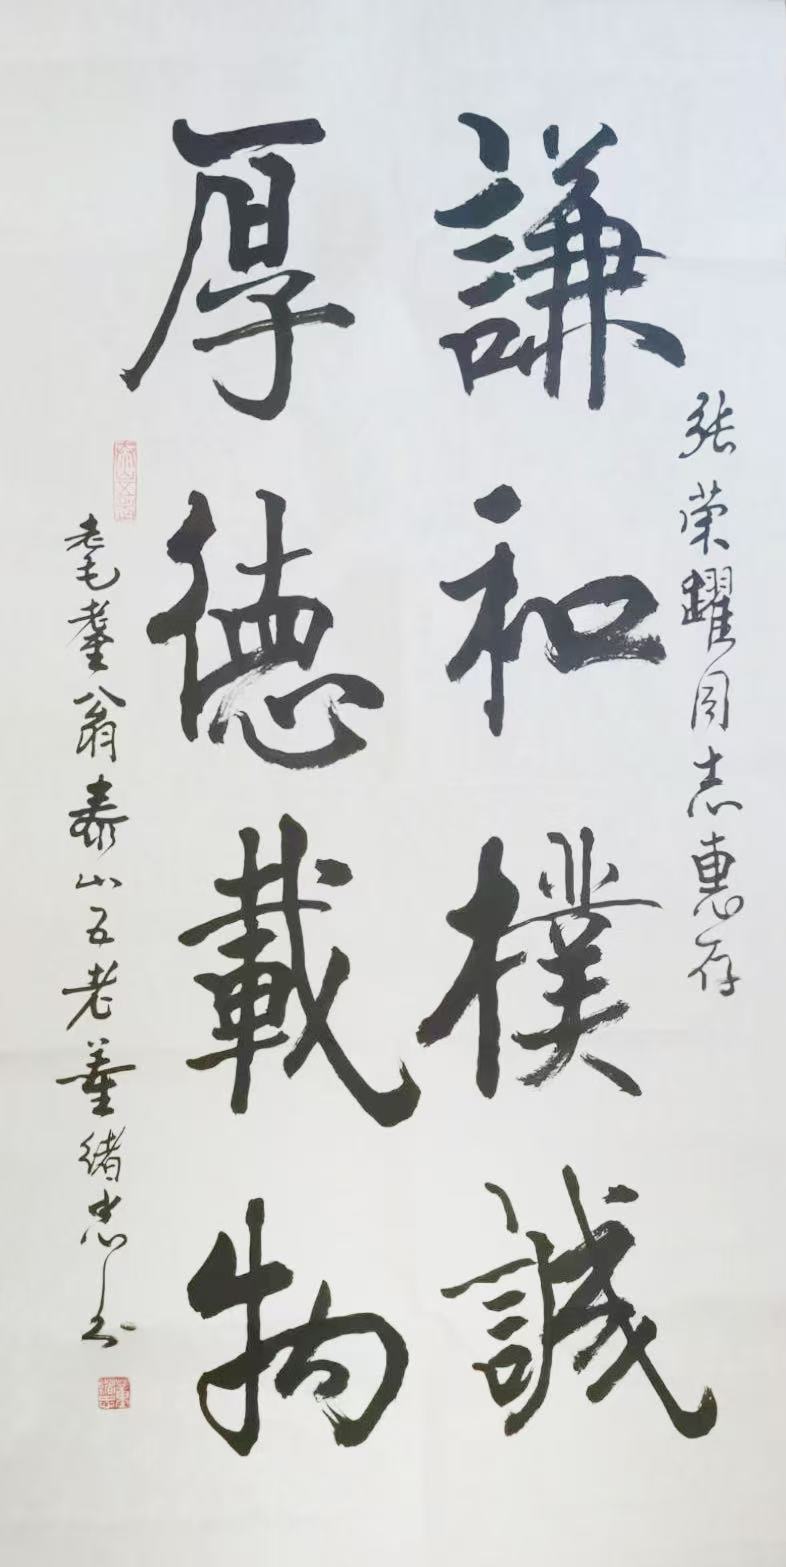 張荣耀同志惠存
謙和樸誠
厚德載物
耄耋翁泰山五老董緒忠书